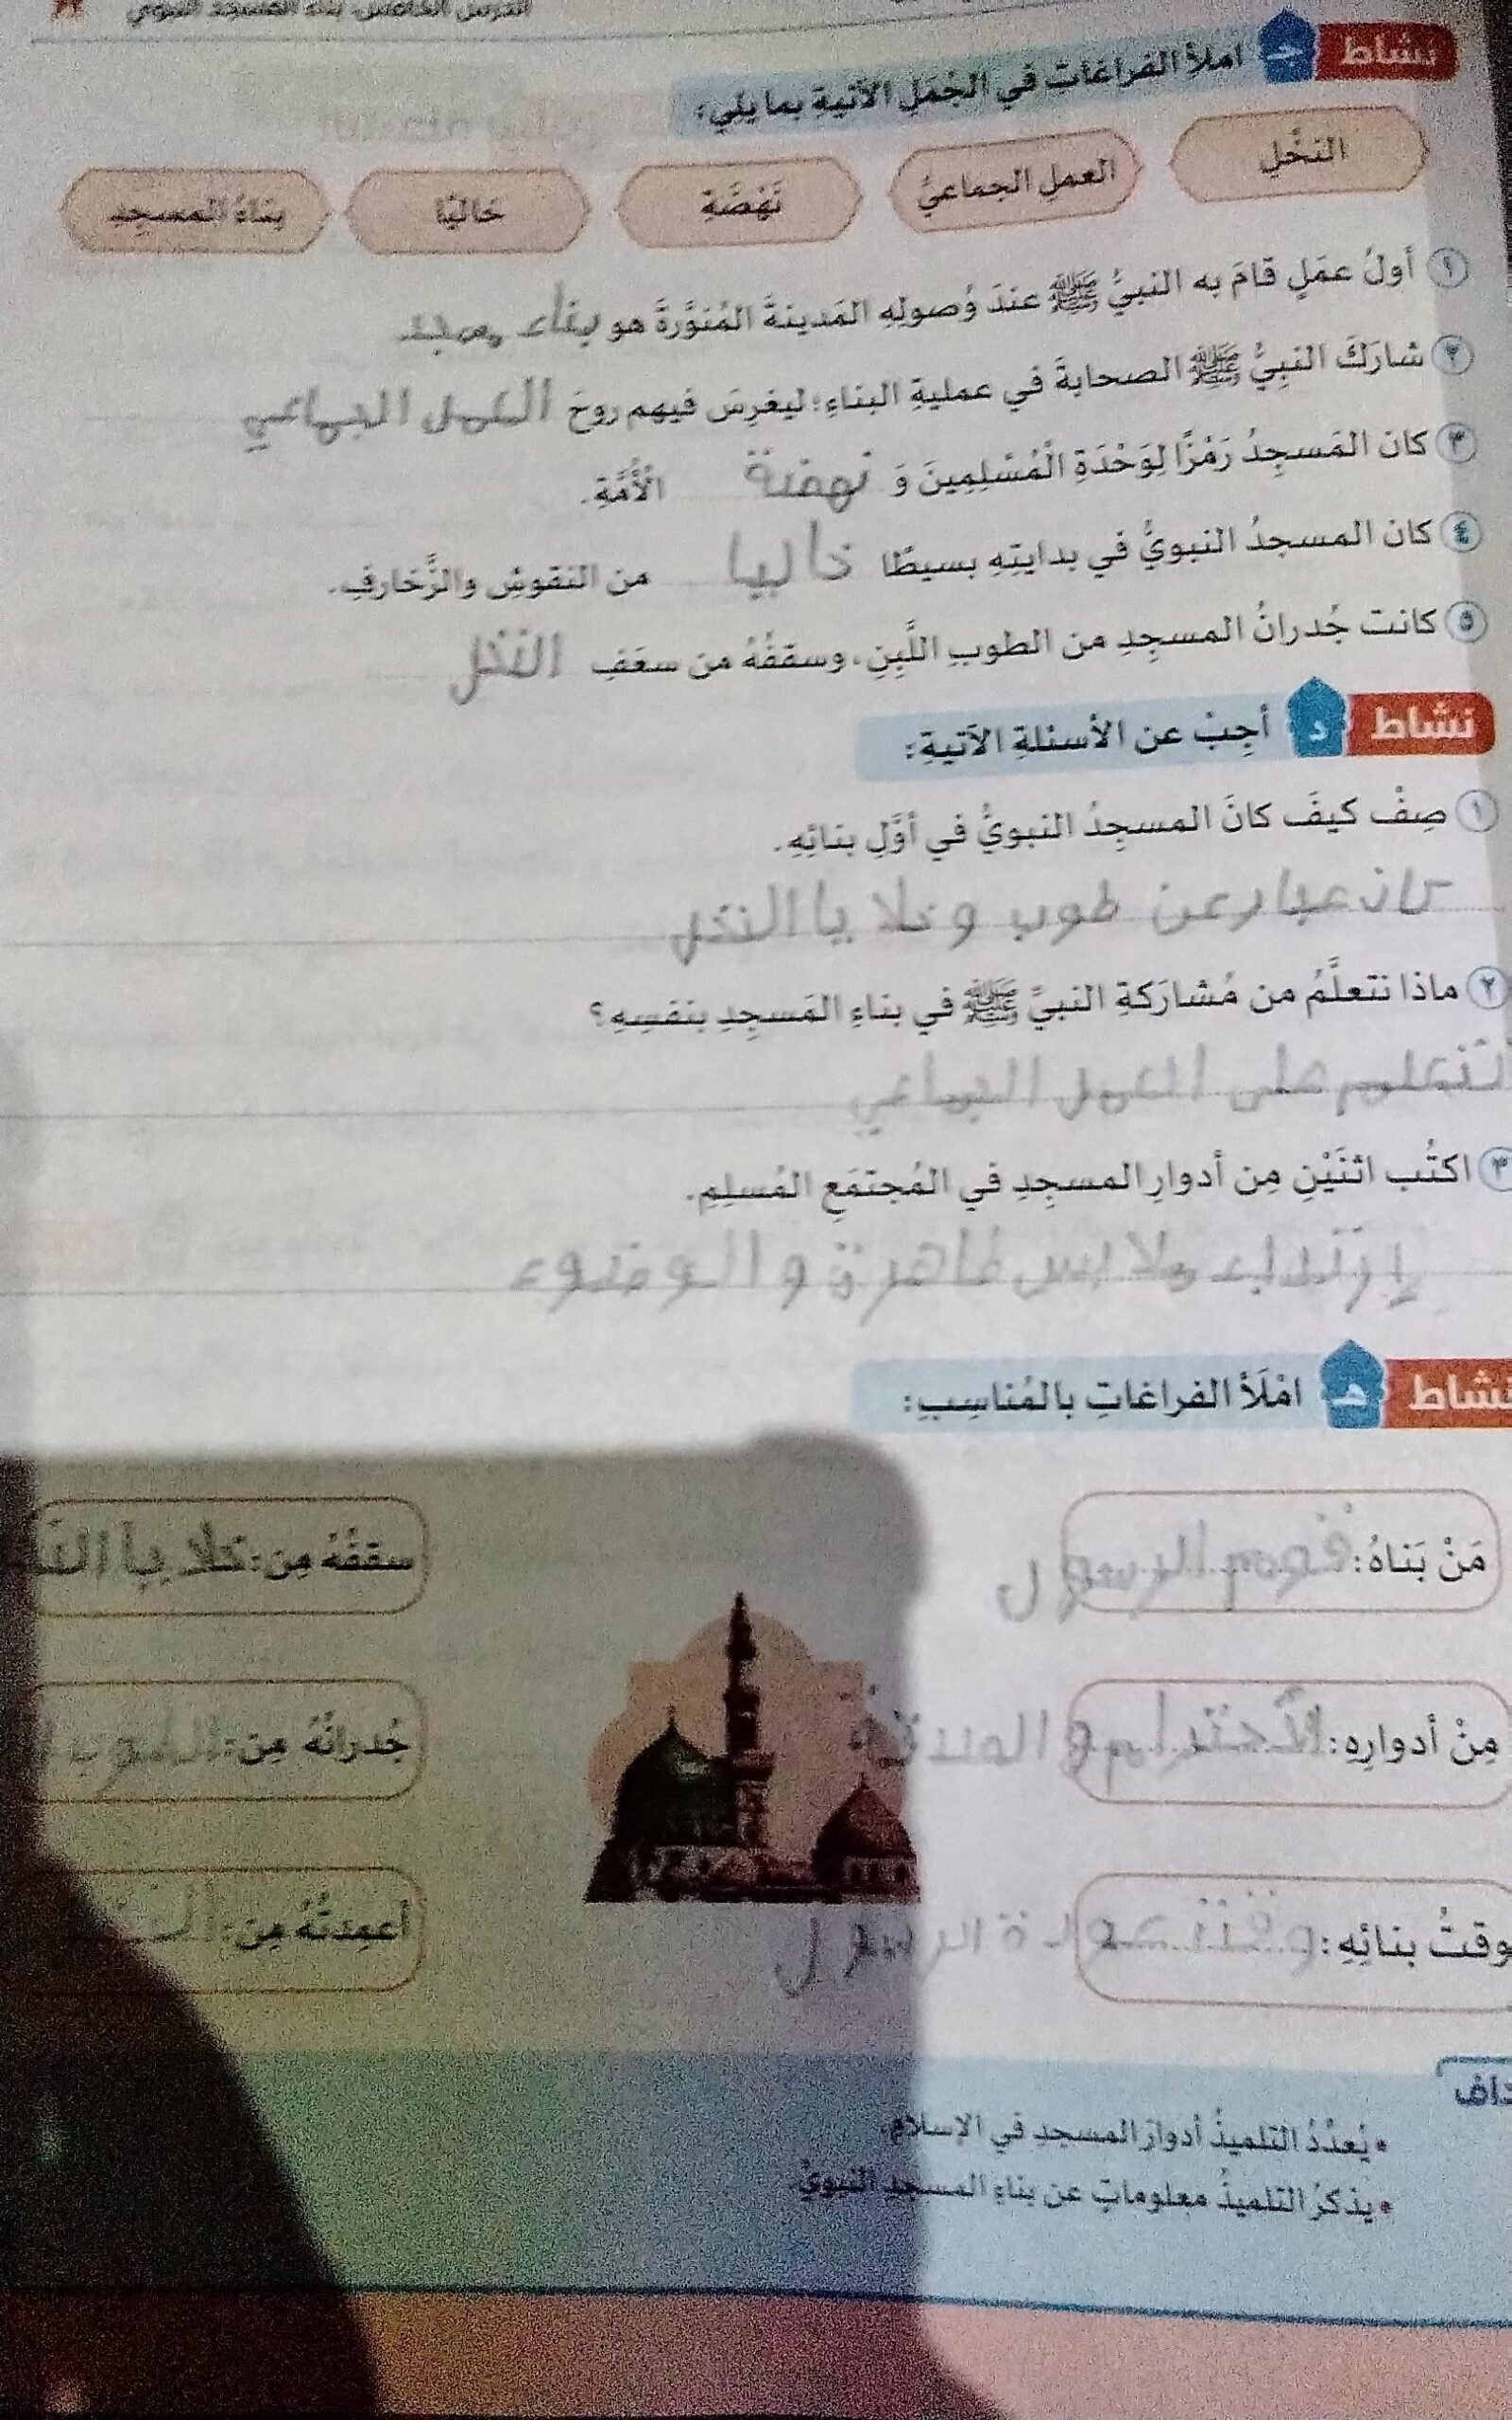 الدرس الخامس: بناء المسجد النبوي
نشاط ج املأ الفراغات في الجُمَلِ الآتيةِ بما يلي:
النَّخْلِ
العملِ الجماعيِّ
نَهْضَةِ
خاليًا
بِنَاءُ المسجِدِ
١ أولُ عمَلٍ قامَ به النبيُّ ﷺ عندَ وُصولِهِ المَدينةَ المُنوَّرةَ هو بناء مسجد
٢ شارَكَ النبِيُّ ﷺ الصحابةَ في عمليةِ البناءِ؛ ليغرِسَ فيهم روحَ العمل الجماعي
٣ كانَ المَسجِدُ رَمْزًا لِوَحْدَةِ الْمُسْلِمِينَ وَ نهضة الْأُمَّةِ.
٤ كان المسجدُ النبويُّ في بدايتِهِ بسيطًا خاليا من النقوشِ والزَّخارفِ.
٥ كانت جُدرانُ المسجِدِ من الطوبِ اللَّبِنِ، وسقفُهُ من سعَفِ النخل
نشاط د أجِبْ عن الأسئلةِ الآتيةِ:
١ صِفْ كيفَ كانَ المسجِدُ النبويُّ في أوَّلِ بنائِهِ.
كان عبار عن طوب و خلا يا النخل
٢ ماذا نتعلَّمُ من مُشارَكةِ النبيِّ ﷺ في بناءِ المَسجِدِ بنفسِهِ؟
نتعلوم على العمل الجماعي
٣ اكتُب اثنَيْنِ مِن أدوارِ المسجِدِ في المُجتمَعِ المُسلِمِ.
إرتداء ملابس طاهرة و الوضوء
نشاط هـ امْلَأ الفراغاتِ بالمُناسِبِ:
مَنْ بَناهُ: قوم الرسول
سقفُهُ مِن: خلا يا
مِنْ أدوارِهِ: الأحترام و الصدقة
جُدرانُهُ مِن: الطوب
وقتُ بنائِهِ: وقت عودة الرسول
أعمِدتُهُ مِن:
• يُعدِّدُ التلميذُ أدوارَ المسجدِ في الإسلامِ.
• يذكرُ التلميذُ معلوماتٍ عن بناءِ المسجدِ النبويِّ.